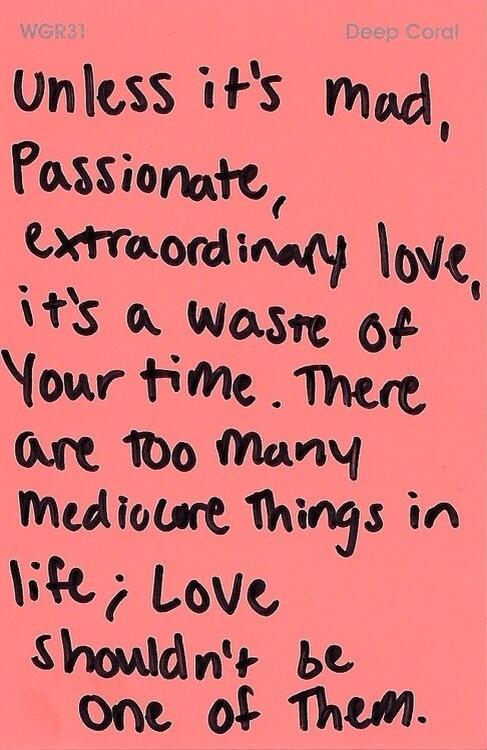 WGR31 Deep Coral
Unless it's mad,
Passionate,
extraordinary love,
it's a waste of
Your time. There
are too many
mediocore Things in
life; Love
shouldn't be
one of Them.